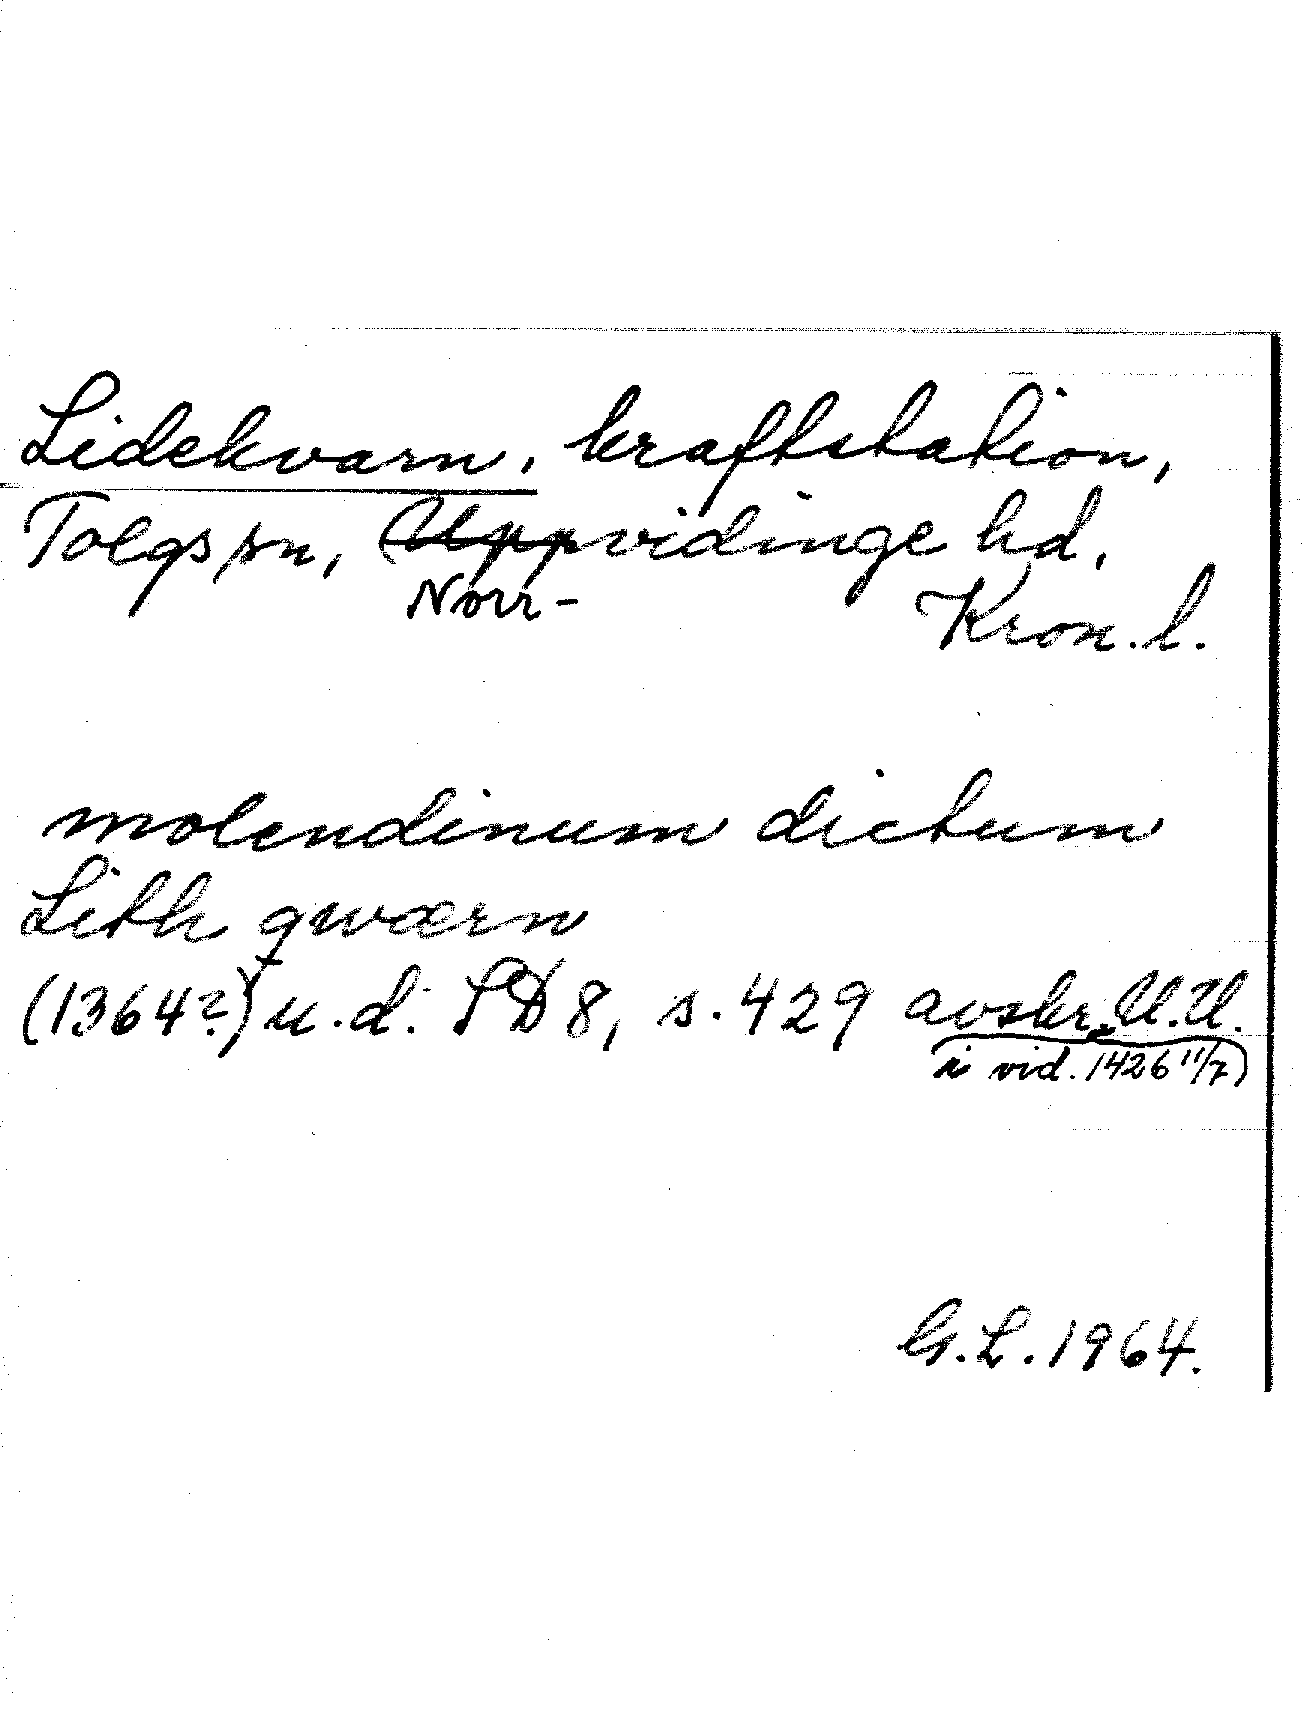 Lidekvarn, kraftstation,
Tolgs sn, Uppvidinge hd,
Norr-
Kron. l.
molendinum dictum
Lith qwærn
(1364?) u. d. SD 8, s. 429 avskr. U.U.
i vid. 1426 11/7)
G.L. 1964.